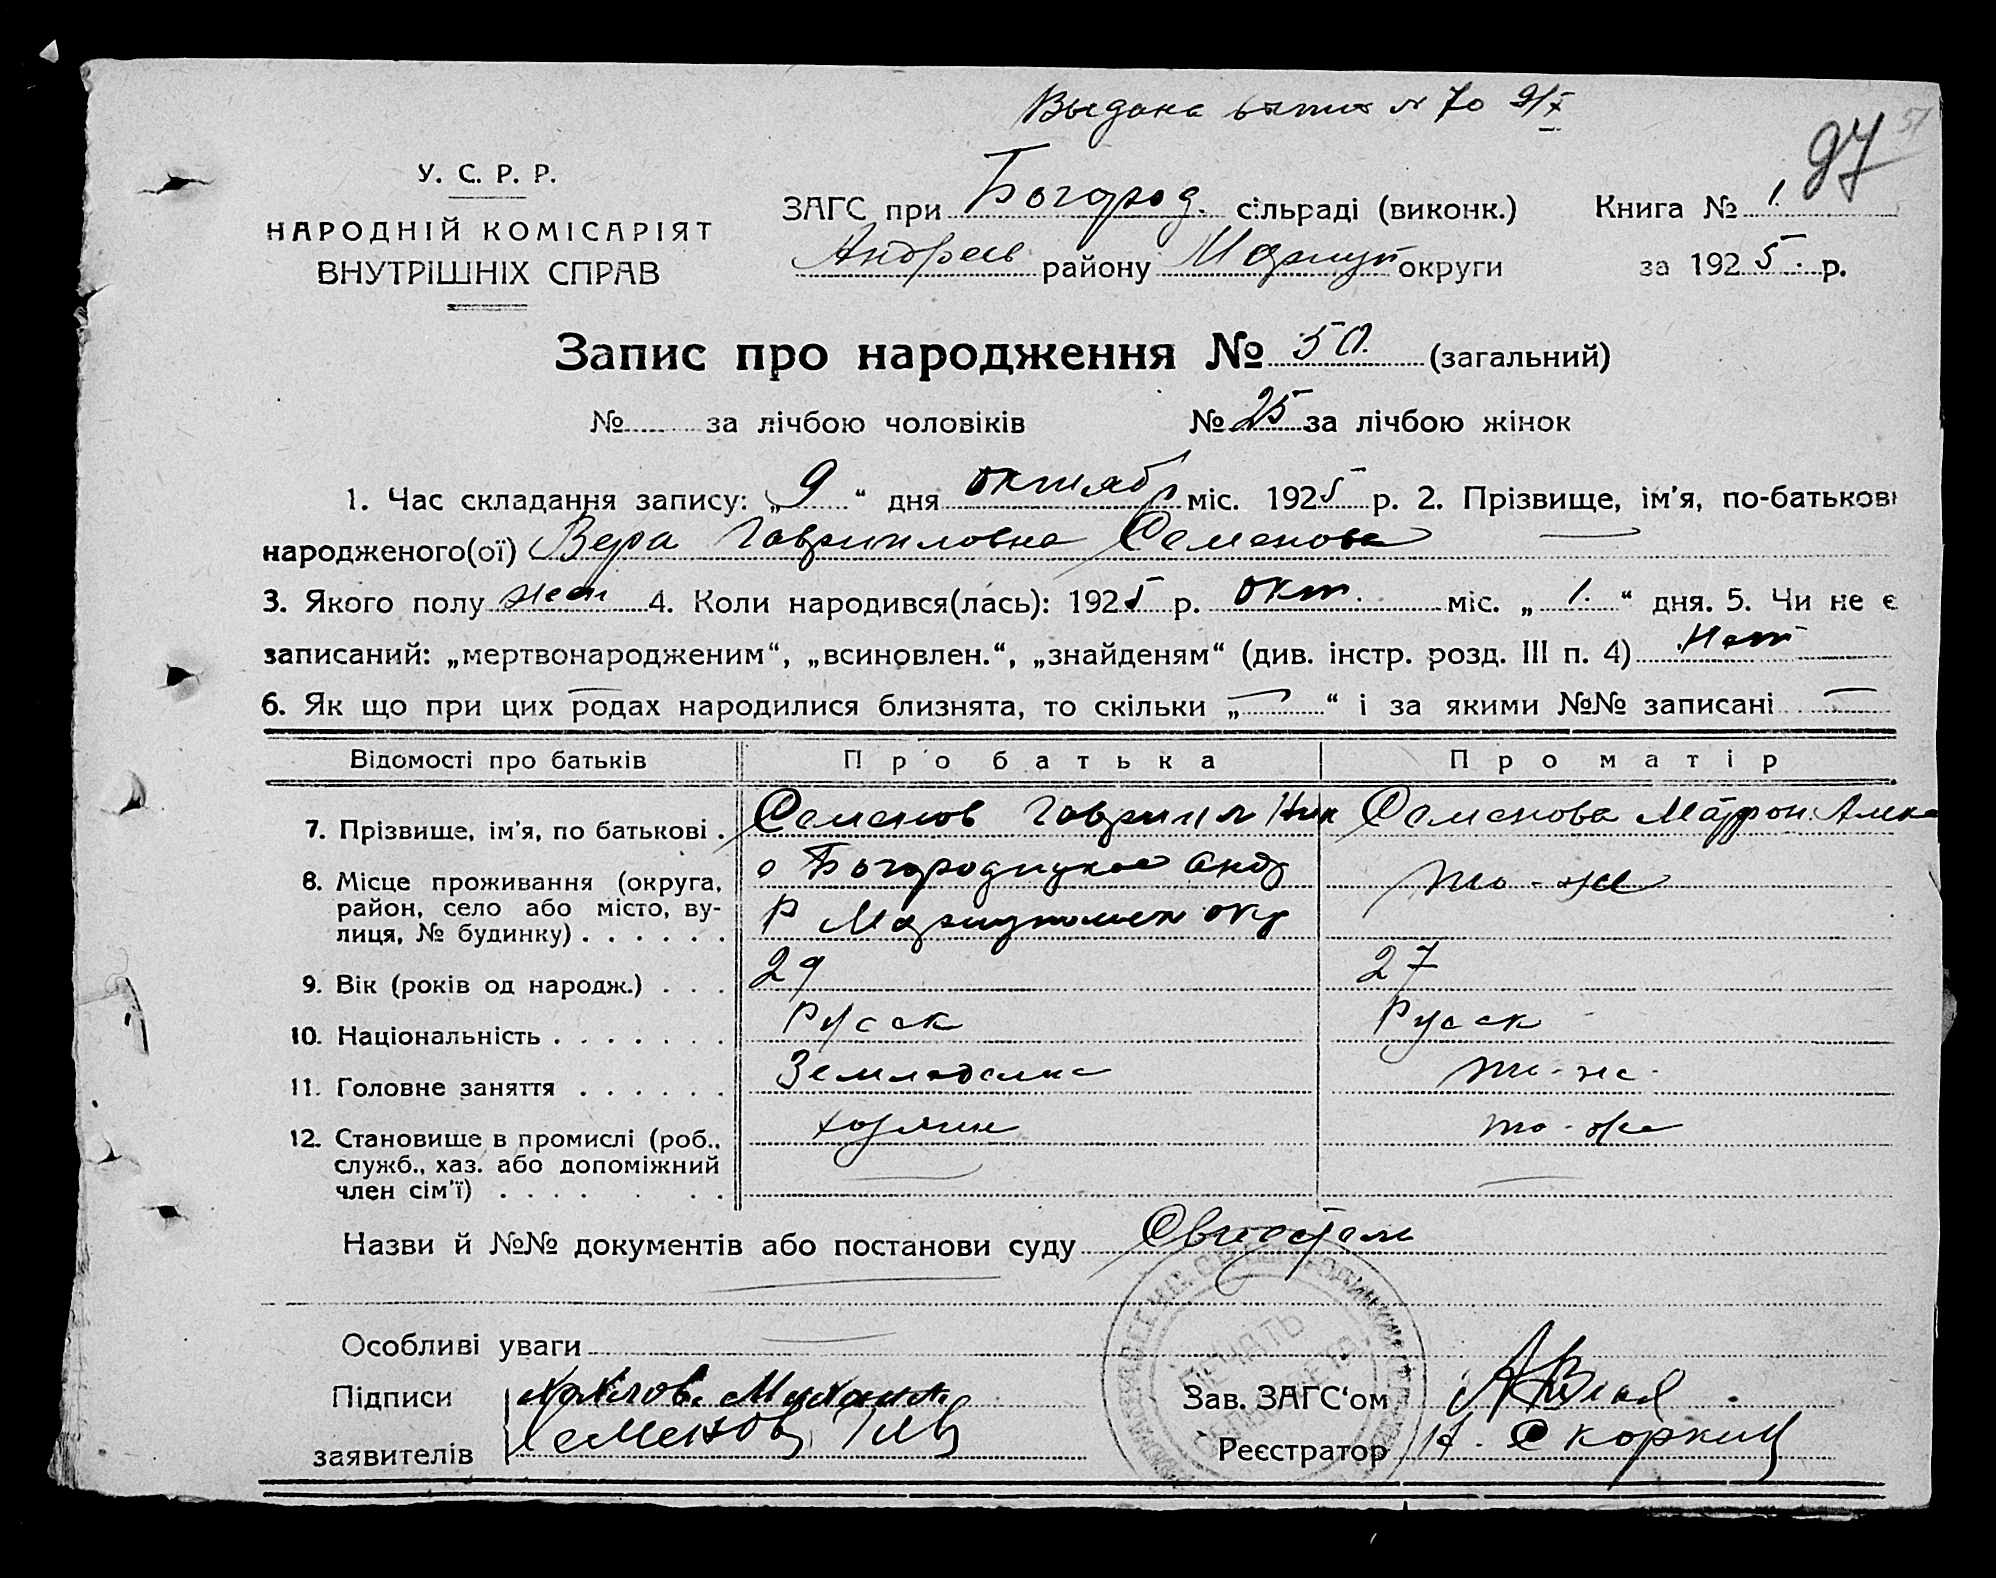 Выдана № 70 9/X
97 51
У. С. Р. Р.
НАРОДНІЙ КОМІСАРІЯТ
ВНУТРІШНІХ СПРАВ
ЗАГС при Богород. сільраді (виконк.) Книга № 1.
Андреев району Мариуп округи за 1925. р.
Запис про народження № 50. (загальний)
№ за лічбою чоловіків № 25 за лічбою жінок
1. Час складання запису: „9“ дня октябр міс. 1925 р. 2. Прізвище, ім'я, по-батькові
народженого(ої) Вера Гаврииловна Семенова —
3. Якого полу жен 4. Коли народився(лась): 1925 р. окт. міс. „1.“ дня. 5. Чи не є
записаний: „мертвонародженим“, „всиновлен.“, „знайденям“ (див. інстр. розд. III п. 4) Нет
6. Як що при цих родах народилися близнята, то скільки „—“ і за якими №№ записані —
Відомості про батьків Про батька Про матір
7. Прізвище, ім'я, по батькові . Семенов Гавриил Ник Семенова Мафрон. Алек
8. Місце проживання (округа, с Богородицкое Андр то-же
район, село або місто, ву- Р Мариупольск окр
лиця, № будинку) . . . . . .
9. Вік (років од народж.) . . . 29 27
10. Національність . . . . . . . Русск Русск
11. Головне заняття . . . . . . Земледелие то-же.
12. Становище в промислі (роб., хозяин то-же
служб., хаз. або допоміжний — —
член сім'ї) . . . . . . .
Назви й №№ документів або постанови суду
Особливі уваги
Підписи Михаил
заявителів Семенов Гав
Зав. ЗАГС'ом
Реєстратор Н. Скоркин
ПЕЧАТЬ